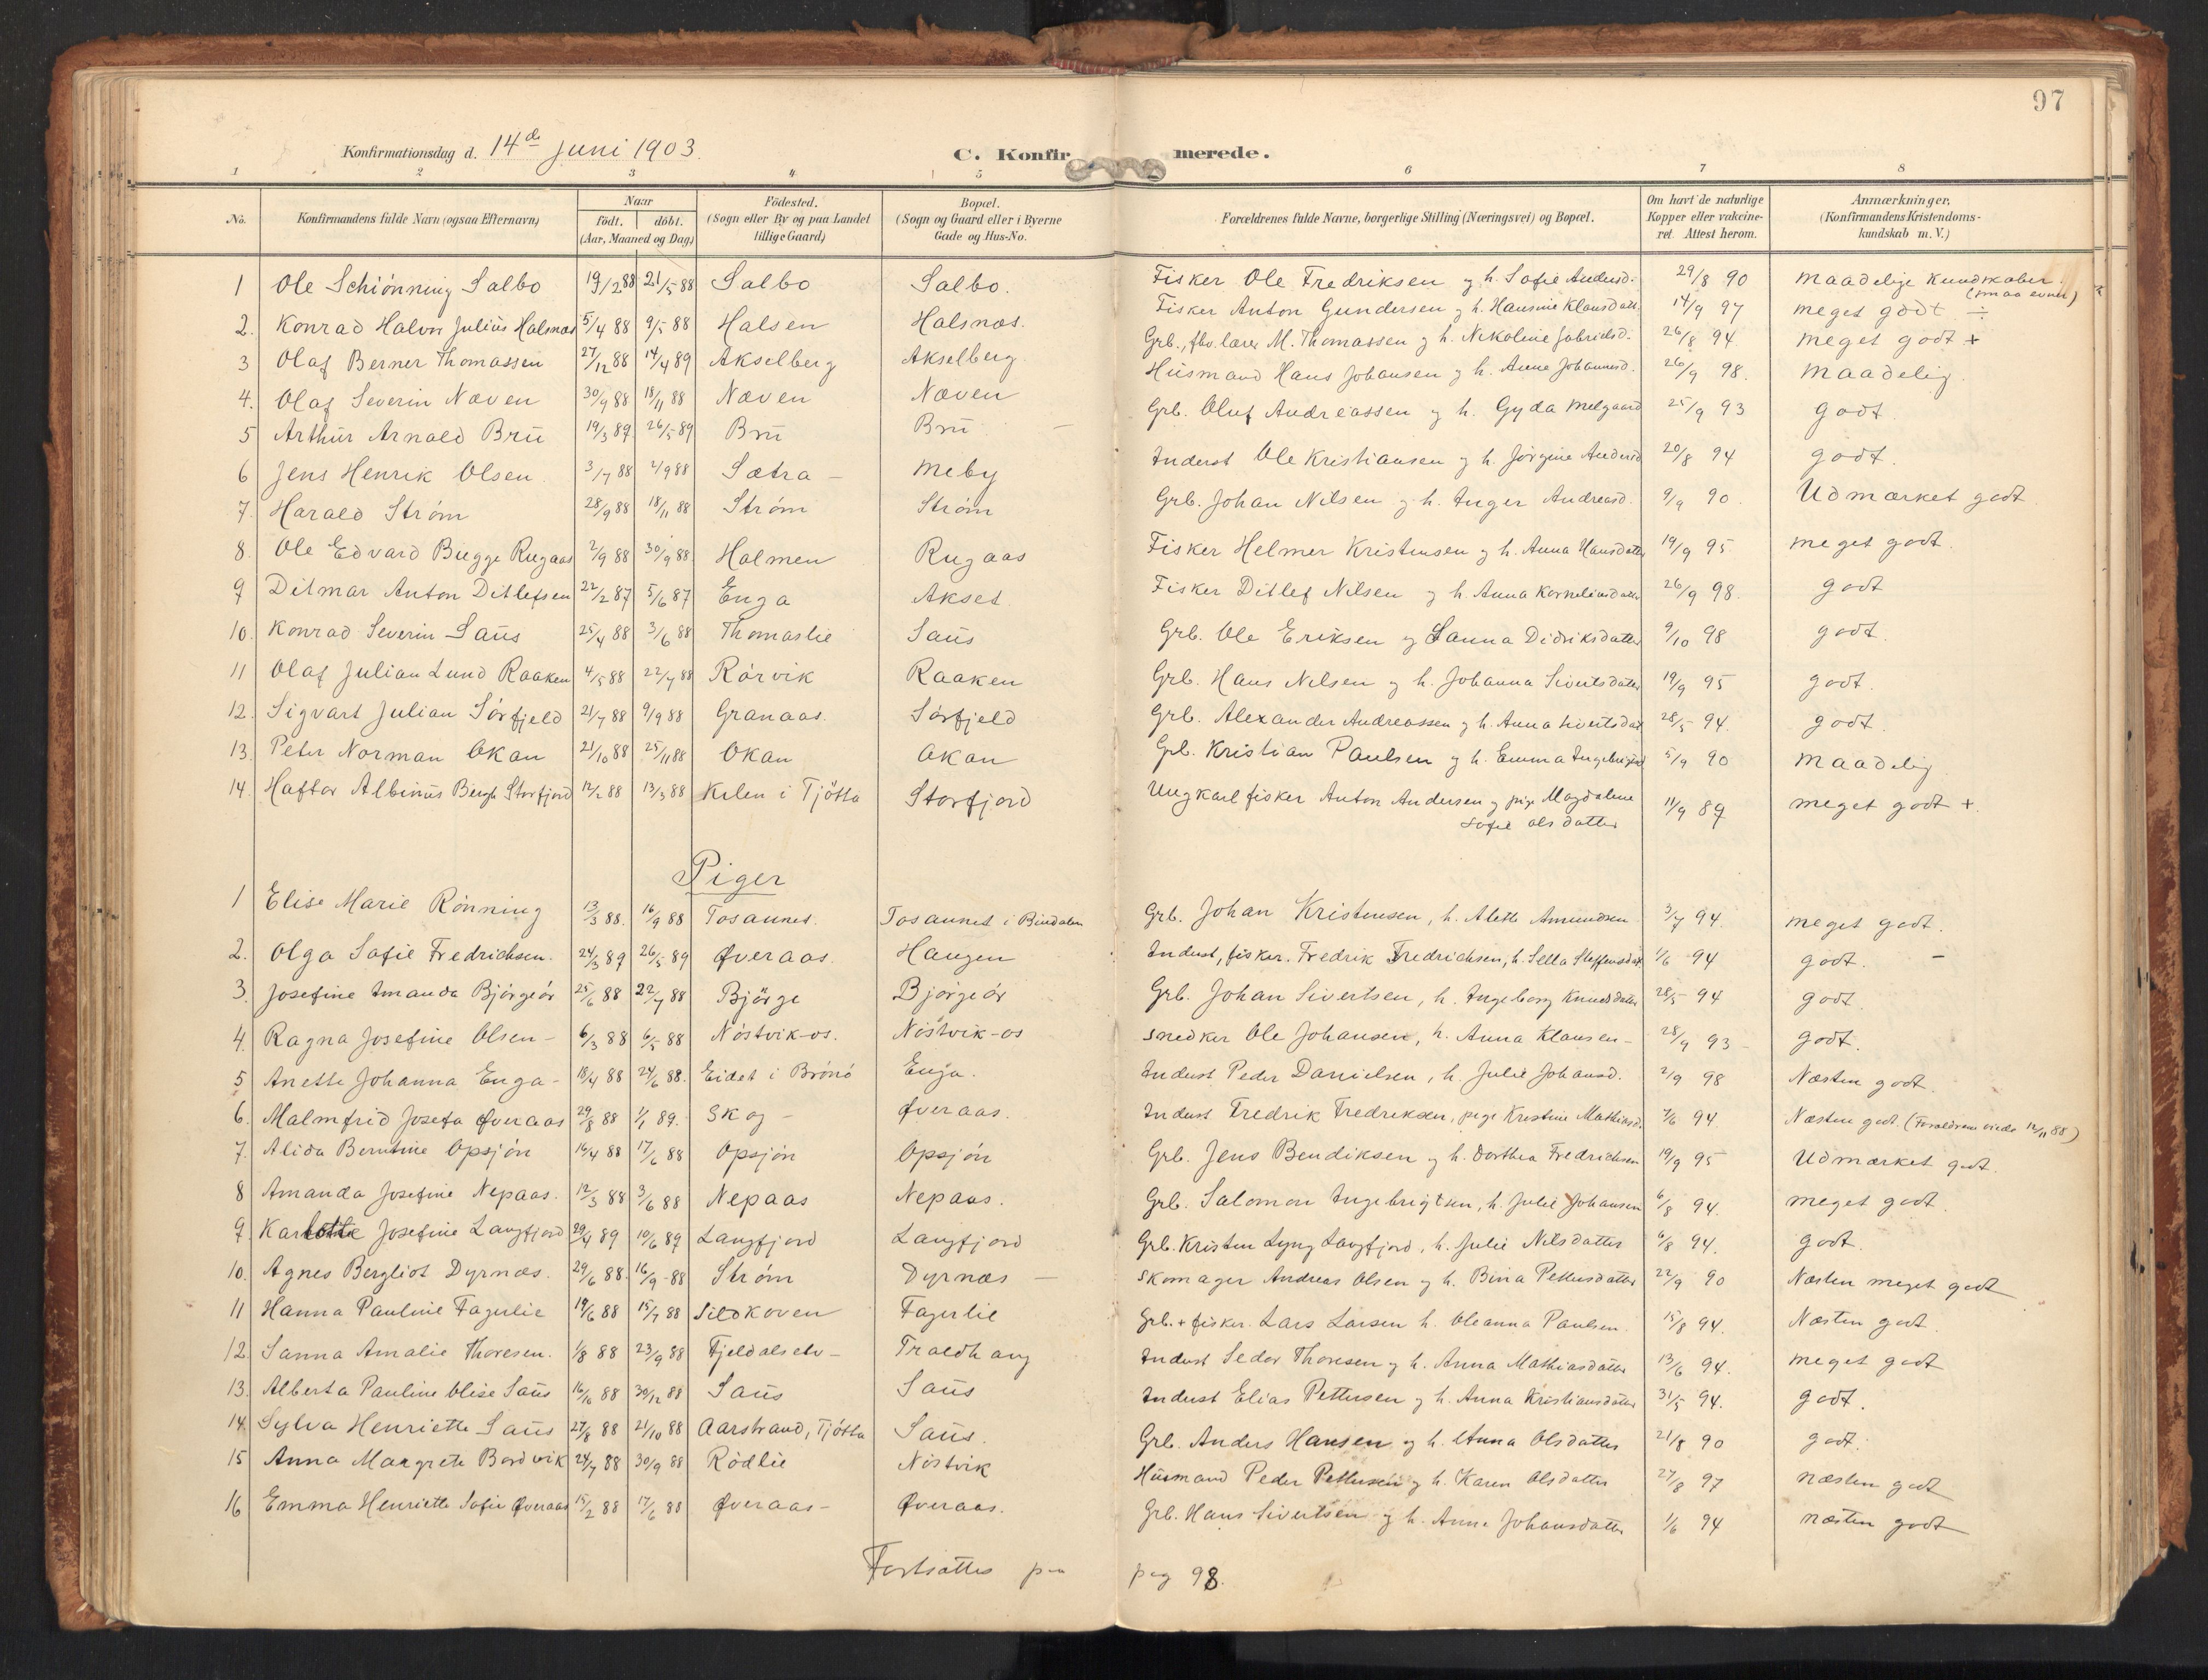 97
Konfirmationsdag d. 14de Juni 1903.
C. Konfirmerede.
1 2 3 4 5 6 7 8
No. Konfirmandens fulde Navn (ogsaa Efternavn) Naar født. døbt. (Aar, Maaned og Dag) Födested. (Sogn eller By og paa Landet tillige Gaard) Bopæl. (Sogn og Gaard eller i Byerne Gade og Hus-No. Forældrenes fulde Navne, borgerlige Stilling (Næringsvei) og Bopæl. Om havt de naturlige Kopper eller vakcineret. Attest herom. Anmærkninger. (Konfirmandens Kristendomskundskab m. V.)
1 Ole Schiönning Salbo 19/2 88 21/5 88 Salbo Salbo. Fisker Ole Fredriksen og h. Sofie Andersd. 29/8 90 maadelige Kundskaber. (smaa evner)
2. Konrad Halvor Julius Halsnæs 5/4 88 9/5 88 Halsen Halsnæs. Fisker Anton Gundersen og h. Hansine Klausdatt. 14/9 97 meget godt ÷
3 Olaf Berner Thomassen 27/12 88 14/4 89 Akselberg Akselberg. Grb., fbv. lærer M. Thomassen og h. Nikoline Gabrielsd. 26/8 94 meget godt +
4. Olaf Severin Næven 30/9 88 18/11 88 Næven Næven Husmand Hans Johansen og h. Anne Johannesd. 26/9 98. maadelig.
5 Arthur Arnold Bru 19/3 89 26/5 89 Bru Bru Grb. Oluf Andreassen og h. Gyda Melgaard 25/9 93 godt
6 Jens Henrik Olsen 3/7 88 2/9 88 Sætra - Meby Inderst Ole Kristiansen og h. Jörgine Andersd 20/8 94 godt.
7. Harald Ström 28/9 88 18/11 88 Ström Ström Grb. Johan Nilsen og h. Inger Andreasd. 9/9 90. Udmærket godt
8. Ole Edvard Bugge Rugaas 2/9 88 30/9 88 Holmen Rugaas Fisker Helmer Kristensen og h. Anna Hansdatter 19/9 95 meget godt.
9 Ditmar Anton Ditlefsen 22/2 87 5/6 87 Enga Akset Fisker Ditlef Nilsen og h. Anna Korneliusdatter 26/9 98. godt
10. Konrad Severin Saus 25/4 88 3/6 88 Thomaslie Saus Grb. Ole Eriksen og Sanna Didriksdatter 9/10 98 godt.
11 Olaf Julian Lund Raaken 4/5 88 22/7 88 Rörvik Raaken Grb. Hans Nilsen og h. Johanna Sivertsdatter 19/9 95 godt.
12. Sigvart Julian Sörfjeld 21/7 88 9/9 88 Granaas. Sörfjeld Grb. Alexander Andreassen og h. Anna Sivertsdat 28/5 94. godt.
13. Peter Norman Okan 21/10 88 25/11 88 Okan Okan Grb. Kristian Paulsen og h. Emma Ingebrigtsd 5/9 90 maadelig
14. Haftor Albinus Bergh Storfjord 12/2 88 13/3 88 Kilen i Tjötta Storfjord Ungkarl fisker Anton Andersen og pige Magdalene Sofie Olsdatter 11/9 89 meget godt +.
Piger
1 Elise Marie Rönning 13/3 88. 16/9 88 Tosaunet. Tosaunet i Bindalen Grb. Johan Kristensen, h. Alette Amundsen 3/7 94. meget godt.
2. Olga Sofie Fredrichsen. 24/3 89 26/5 89 Øveraas. Haugen Inderst, fisker. Fredrik Fredrichsen, h. Sella Steffensdat 1/6 94 godt. -
3. Josefine Amanda Björgeör 25/6 88 22/7 88 Björge Björgeör Grb. Johan Sivertsen, h. Ingeborg Knudsdatter 28/5 94 godt.
4. Ragna Josefine Olsen - 6/3 88 6/5 88 Nöstvik-os. Nöstvik-os Snedker Ole Johansen, h. Anna Klausen - 28/9 93 - godt.
5 Anette Johanna Enga - 18/4 88 24/6 88. Eidet i Brönö Enga. Inderst Peder Danielsen, h. Julie Johansd. 2/9 98 Næsten godt.
6. Malmfrid Josefa Øveraas 29/8 88 1/1 89. Skog - Øveraas. Inderst Fredrik Fredriksen, pige Kristine Mathiasd. 7/6 94 Næsten godt. (Forældrene viede 12/11 88)
7. Alida Berntine Opsjön 16/4 88 17/6 88 Opsjön Opsjön Grb. Jens Bendiksen og h. Dorthea Fredrichsen 19/9 95 Udmærket godt.
8 Amanda Josefine Nepaas. 12/3 88 3/6 88 Nepaas Nepaas. Grb. Salomon Ingebrigtsen, h. Julie Johansen 6/8 94. meget godt
9. Karlotte Josefine Langfjord 29/4 89 10/6 89 Langfjord Langfjord Grb. Kristen Lyng Langfjord, h. Julie Nilsdatter 6/8 94. godt.
10. Agnes Bergliot Dyrnæs. 29/6 88. 16/9 88 Ström Dyrnæs - Skomager Andreas Olsen og h. Bina Pettersdatter 22/9 90 Næsten meget godt
11 Hanna Pauline Fagerlie 19/6 88 15/7 88 Sildkoven Fagerlie Grb. + fisker. Lars Larsen h. Oleanna Paulsen. 15/8 94. Næsten godt.
12. Sanna Amalie Thoresen. 1/8 88 23/9 88 Fjeldalselv - Traldhaug Inderst Sedor Thoresen og h. Anna Mathiasdatter 13/6 94. meget godt
13. Alberta Pauline Olise Saus 16/10 88 30/12 88 Saus Saus Inderst Elias Pettersen og h. Anna Kristiansdatter 31/5 94. godt.
14. Sylva Henriette Saus 27/8 88 21/10 88 Aarstrand, Tjötta Saus. Grb. Anders Hansen og h. Anna Olsdatter 21/8 90 godt.
15 Anna Margrete Bordvik 24/7 88 30/9 88 Rödlie Nöstvik Husmand Peder Pettersen og h. Karen Olsdatter 27/8 97 næsten godt
16 Emma Henriette Sofie Øveraas 15/2 88 17/6 88 Øveraas - Øveraas. Grb. Hans Sivertsen og h. Anne Johansdatter 1/6 94 næsten godt
Fortsættes paa pag 98.